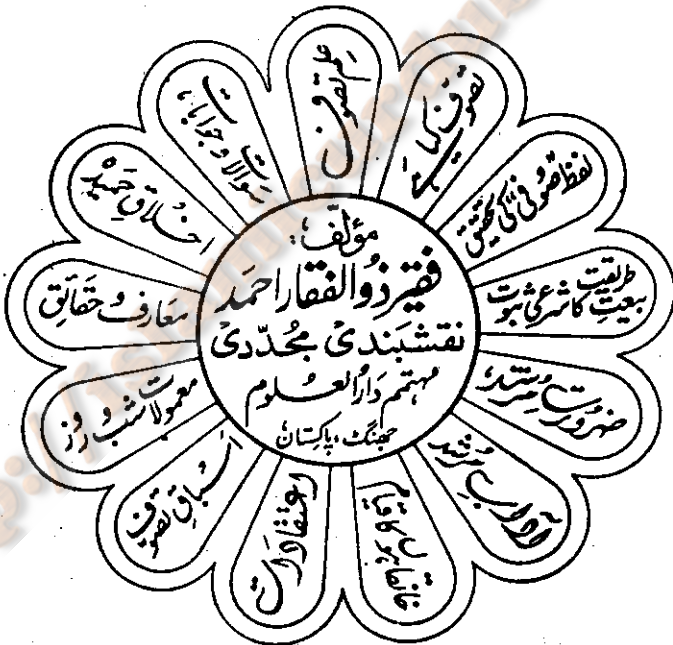 مؤلف:
فقیر ذوالفقار احمد
نقشبندی مجددی
مہتمم دارالعلوم
جھنگ، پاکستان
علم تصوف
تصوف کیا ہے
لفظ صوفی کی تحقیق
بیعتِ طریقت کا شرعی ثبوت
ضرورتِ مرشد
آدابِ مرشد
خانقاہوں کا قیام
اعتقادات
اسباقِ تصوف
معمولات شب و روز
معارف و حقائق
اخلاقِ حمیدہ
سوالات و جوابات